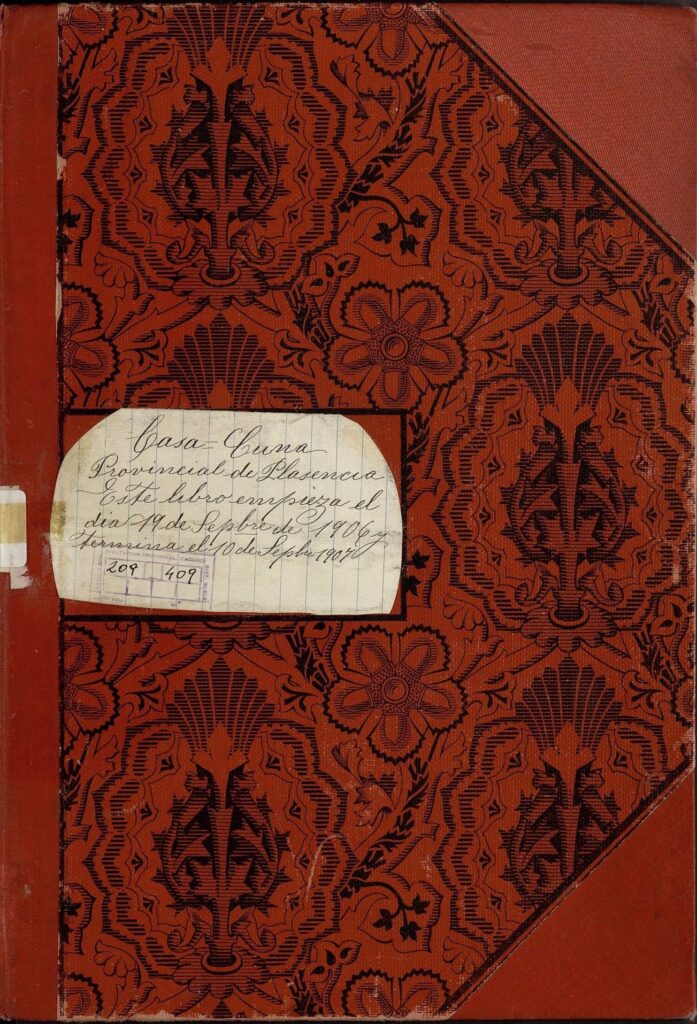 Casa=Cuna
Provincial de Plasencia
Este libro empieza el
dia 19 de Sepbre de 1906 y
termina el 10 de Sepbre 1907
DIPUTACION PROVINCIAL CACERES
209 409